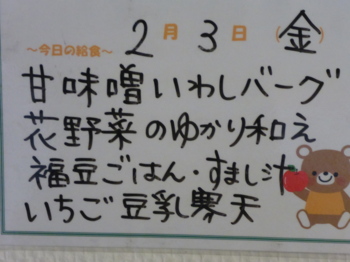 ～今日の給食～ 2月3日(金)
甘味噌いわしバーグ
花野菜のゆかり和え
福豆ごはん・すまし汁
いちご豆乳寒天